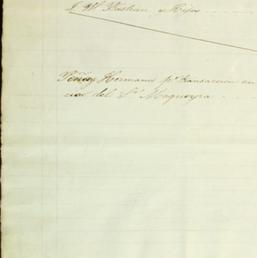 J. W. Bastian é Hijos
Perez Hermanos pr. transaccion en
cion del Sr. Maqueyra